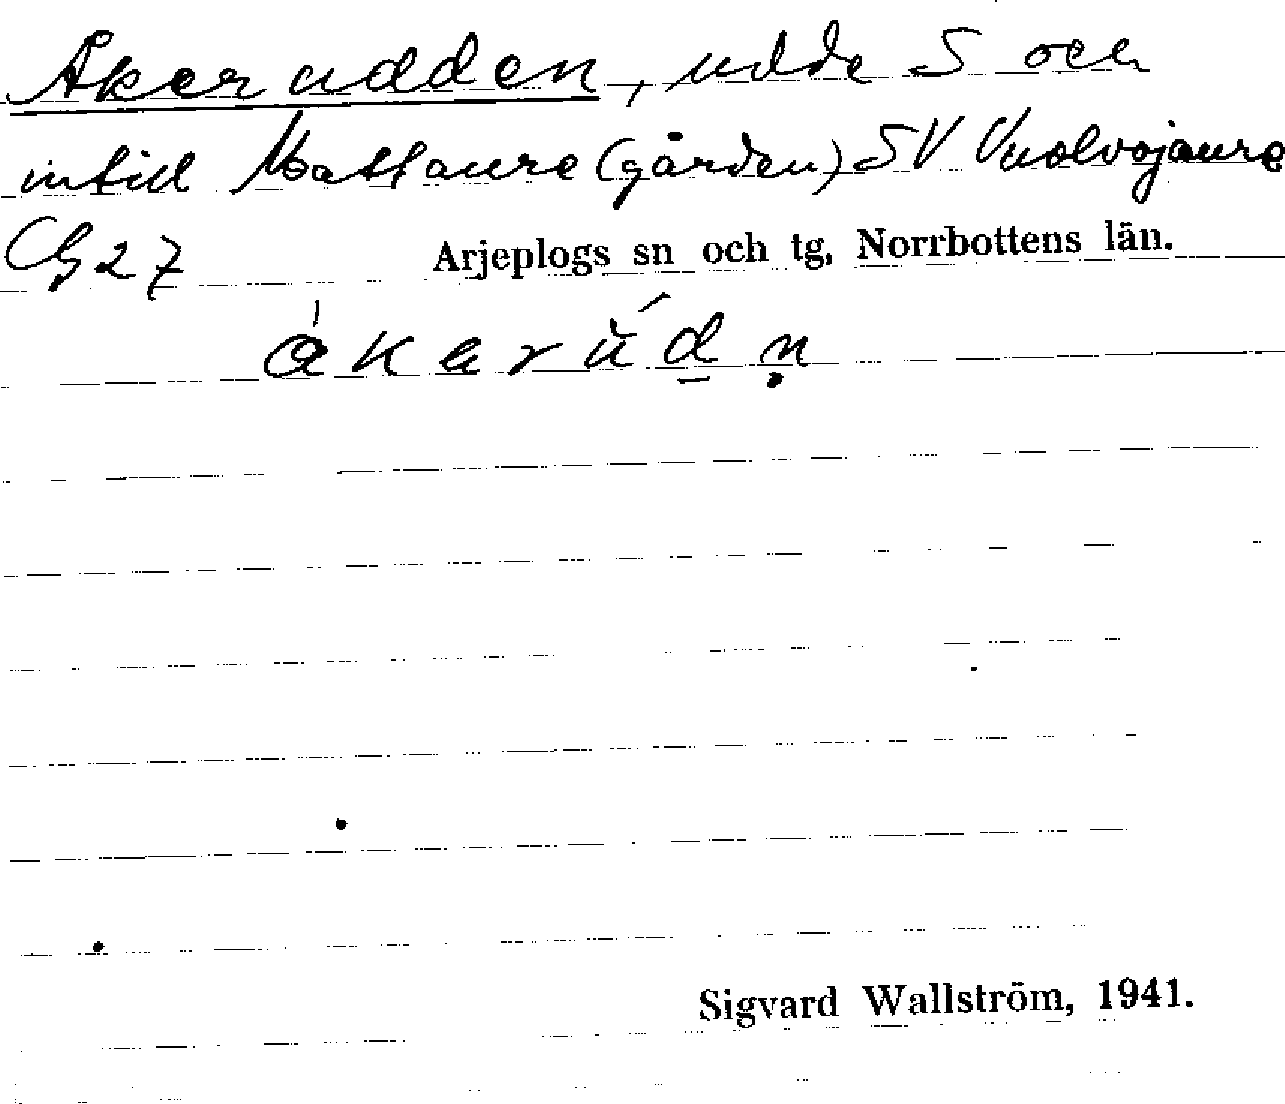 Åkerudden, udde S och
intill Mattaure (gården) SV Vuolvojaure
Cg 27 Arjeplogs sn och tg, Norrbottens län.
åkerùd̠ṇ
Sigvard Wallström, 1941.